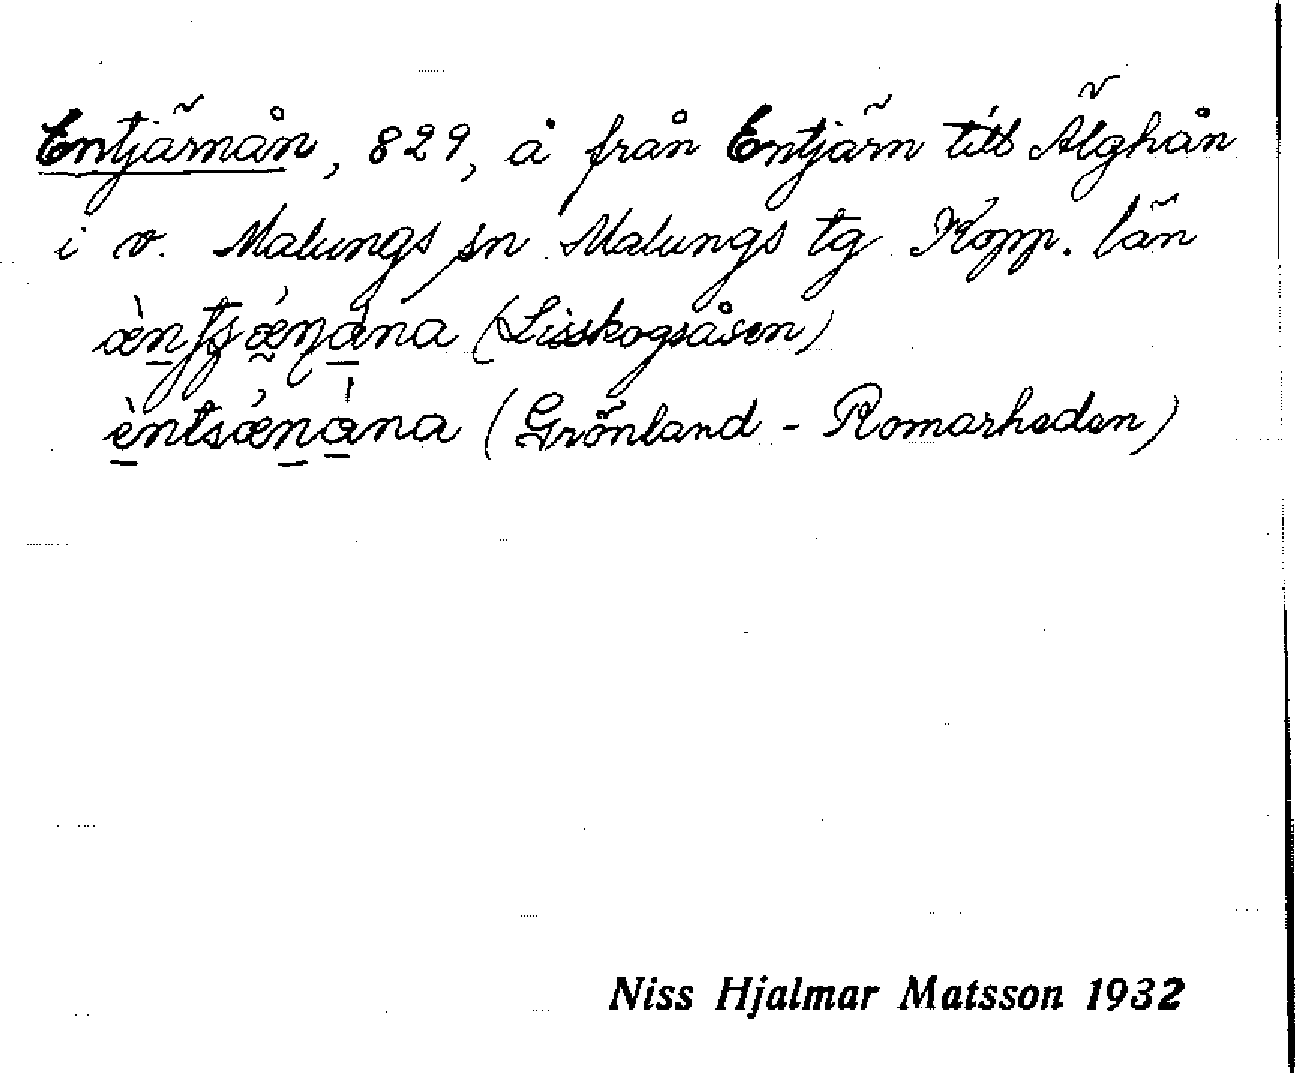 Entjärnån, 829, å från Entjärn till Älghån
i v. Malungs sn Malungs tg Kopp. län
(Lisskogsåsen)
èntsǽnána (Grönland - Romarheden)
Niss Hjalmar Matsson 1932